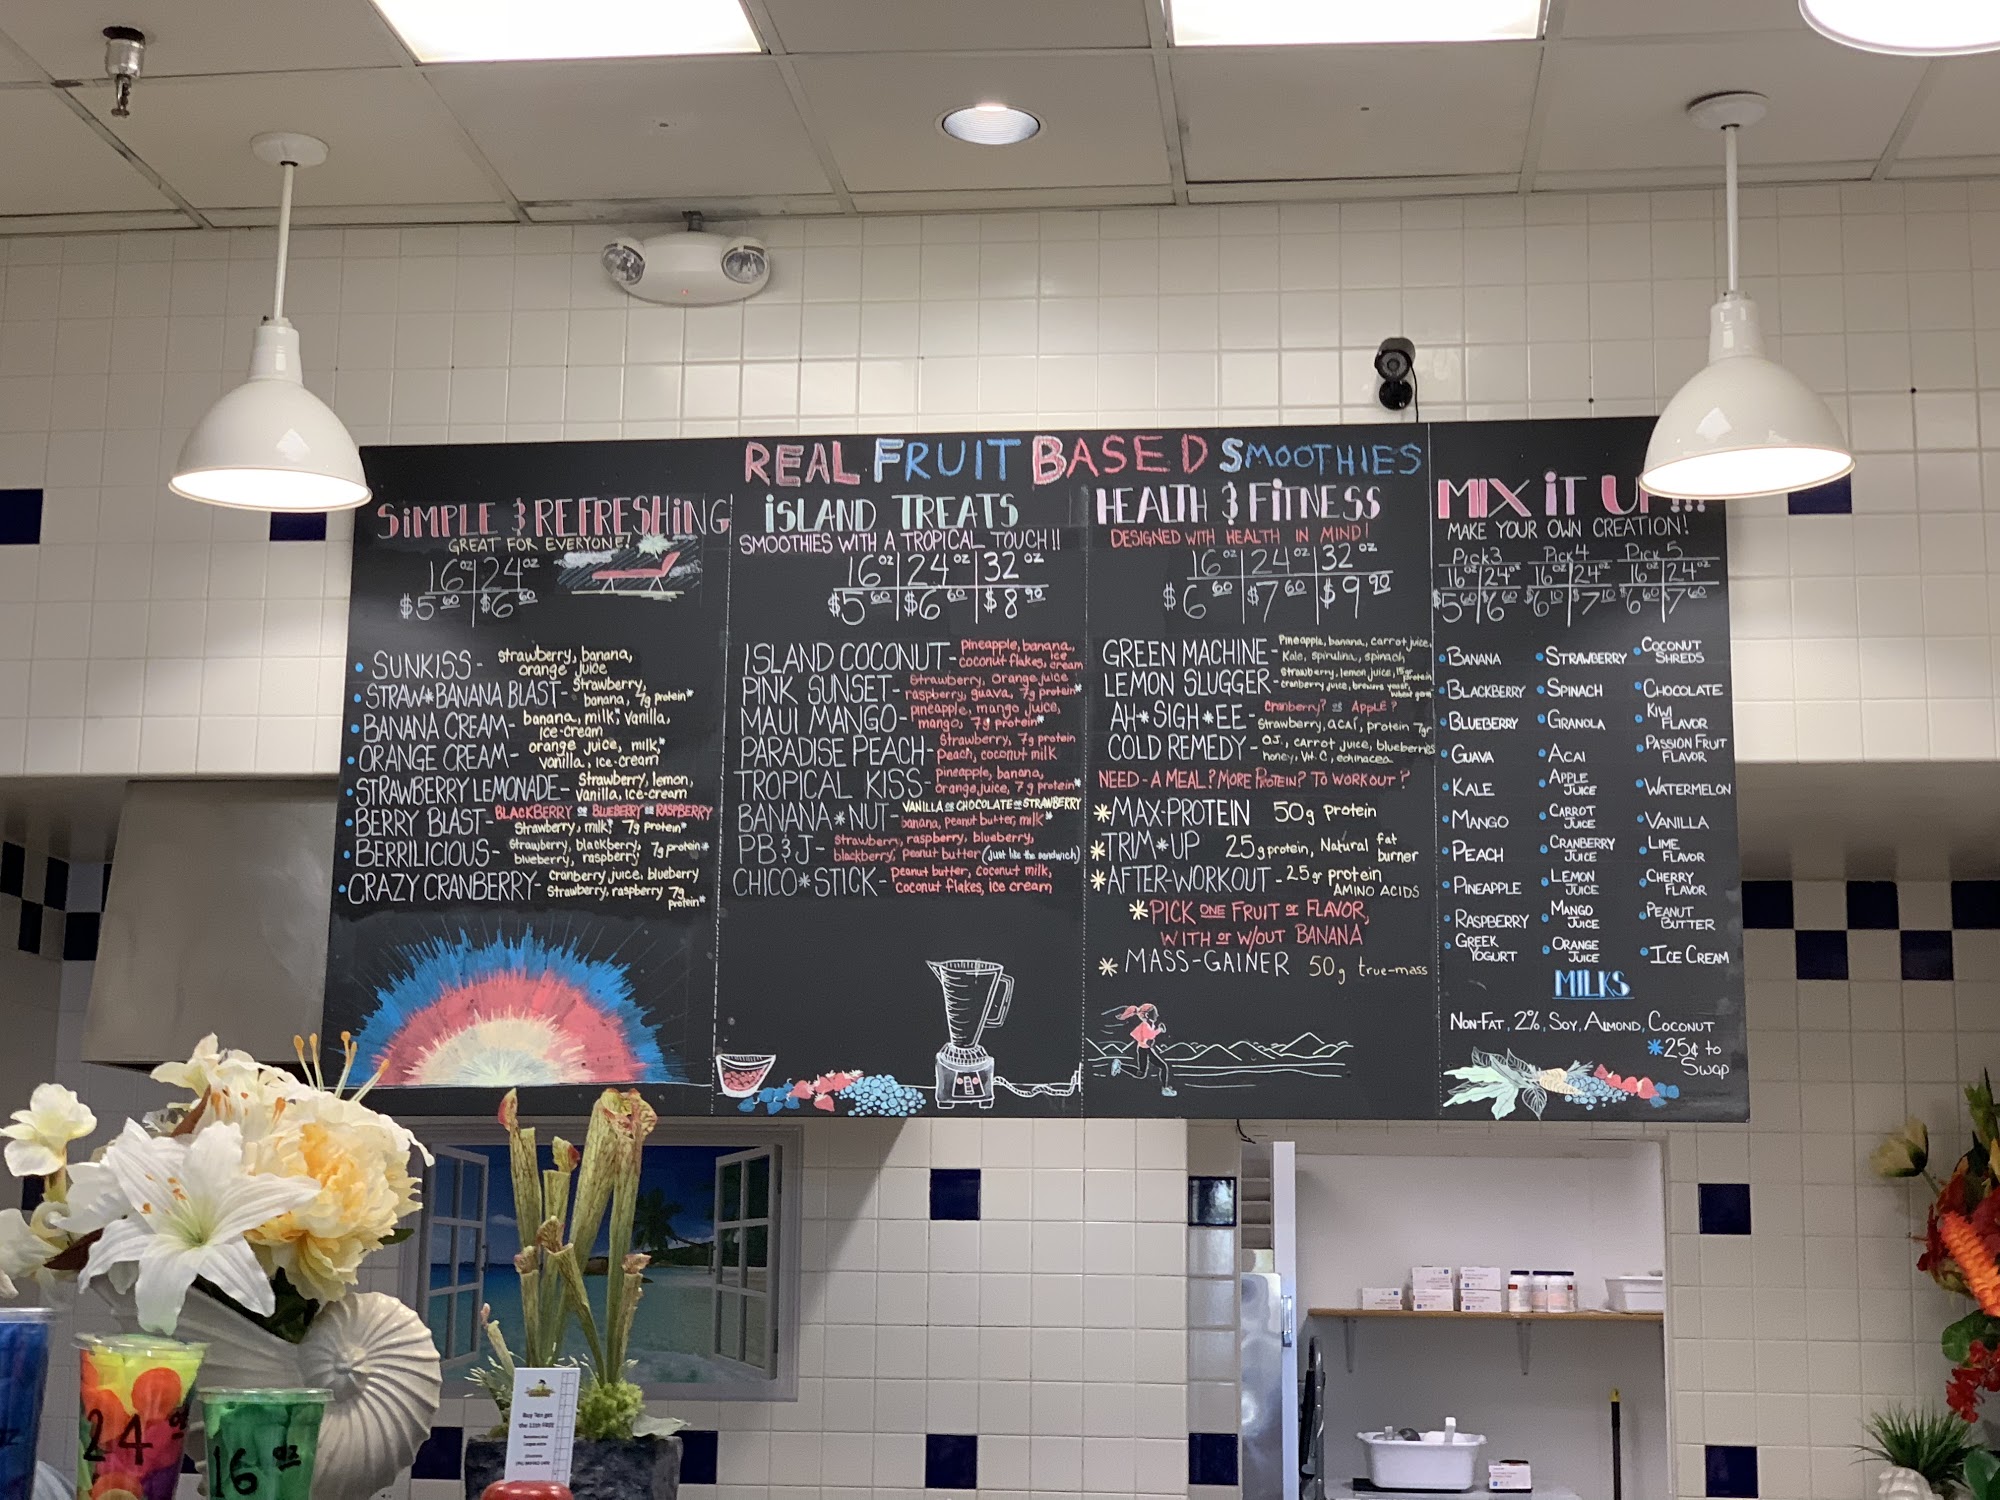 REAL FRUIT BASED SMOOTHIES
SiMPLE & REFRESHiNG
GREAT FOR EVERYONE!
16 oz 24 oz
$5 60 $6 60
SUNKISS - strawberry, banana,
orange juice
STRAW*BANANA BLAST - Strawberry,
banana, 7g protein*
BANANA CREAM - banana, milk, vanilla,
ice-cream
ORANGE CREAM - orange juice, milk,*
vanilla, ice-cream
STRAWBERRY LEMONADE - Strawberry, lemon,
vanilla, ice-cream
BERRY BLAST - BLACKBERRY OR BLUEBERRY OR RASPBERRY
Strawberry, milk, 7g protein*
BERRILICIOUS - Strawberry, blackberry,
blueberry, raspberry 7g protein*
CRAZY CRANBERRY - cranberry juice, blueberry
Strawberry, raspberry 7g
protein*
iSLAND TREATS
SMOOTHIES WITH A TROPICAL TOUCH!!
16 oz 24 oz 32 oz
$5 60 $6 60 $8 90
ISLAND COCONUT - Pineapple, banana,
coconut flakes, ice
cream
PINK SUNSET - Strawberry, Orange juice
raspberry, guava, 7g protein*
MAUI MANGO - pineapple, mango juice,
mango, 7g protein*
PARADISE PEACH - Strawberry, 7g protein
Peach, coconut milk
TROPICAL KISS - pineapple, banana,
orange juice, 7g protein*
BANANA*NUT - VANILLA OR CHOCOLATE OR STRAWBERRY
banana, peanut butter, milk*
PB&J - Strawberry, raspberry, blueberry,
blackberry, Peanut butter (just like the sandwich)
CHICO*STICK - Peanut butter, coconut milk,
coconut flakes, ice cream
HEALTH & FiTNESS
DESIGNED WITH HEALTH IN MIND!
16 oz 24 oz 32 oz
$6 60 $7 60 $9 90
GREEN MACHINE - Pineapple, banana, carrot juice,
Kale, spirulina, spinach
LEMON SLUGGER - Strawberry, lemon juice, 15g protein
cranberry juice, brewers yeast, wheat germ
AH*SIGH*EE - Cranberry? OR APPLE?
Strawberry, acai, protein 7gr
COLD REMEDY - O.J., carrot juice, blueberries
honey, Vit. C, echinacea
NEED-A MEAL? MORE PROTEIN? TO WORKOUT?
*MAX-PROTEIN 50g protein
*TRIM*UP 25g protein, Natural fat
burner
*AFTER-WORKOUT - 25gr protein
AMINO ACIDS
*PICK ONE FRUIT OR FLAVOR,
WITH OR W/OUT BANANA
*MASS-GAINER 50g true-mass
MIX iT UP!!!
MAKE YOUR OWN CREATION!
Pick 3 Pick 4 Pick 5
16 oz 24 oz 16 oz 24 oz 16 oz 24 oz
$5 60 $6 60 $6 10 $7 10 $6 60 $7 60
BANANA
BLACKBERRY
BLUEBERRY
GUAVA
KALE
MANGO
PEACH
PINEAPPLE
RASPBERRY
GREEK
YOGURT
STRAWBERRY
SPINACH
GRANOLA
ACAI
APPLE
JUICE
CARROT
JUICE
CRANBERRY
JUICE
LEMON
JUICE
MANGO
JUICE
ORANGE
JUICE
COCONUT
SHREDS
CHOCOLATE
KIWI
FLAVOR
PASSION FRUIT
FLAVOR
WATERMELON
VANILLA
LIME
FLAVOR
CHERRY
FLAVOR
PEANUT
BUTTER
ICE CREAM
MILKS
NON-FAT, 2%, SOY, ALMOND, COCONUT
*25¢ to
Swap
24 oz
16 oz
Buy Ten get
the 11th FREE